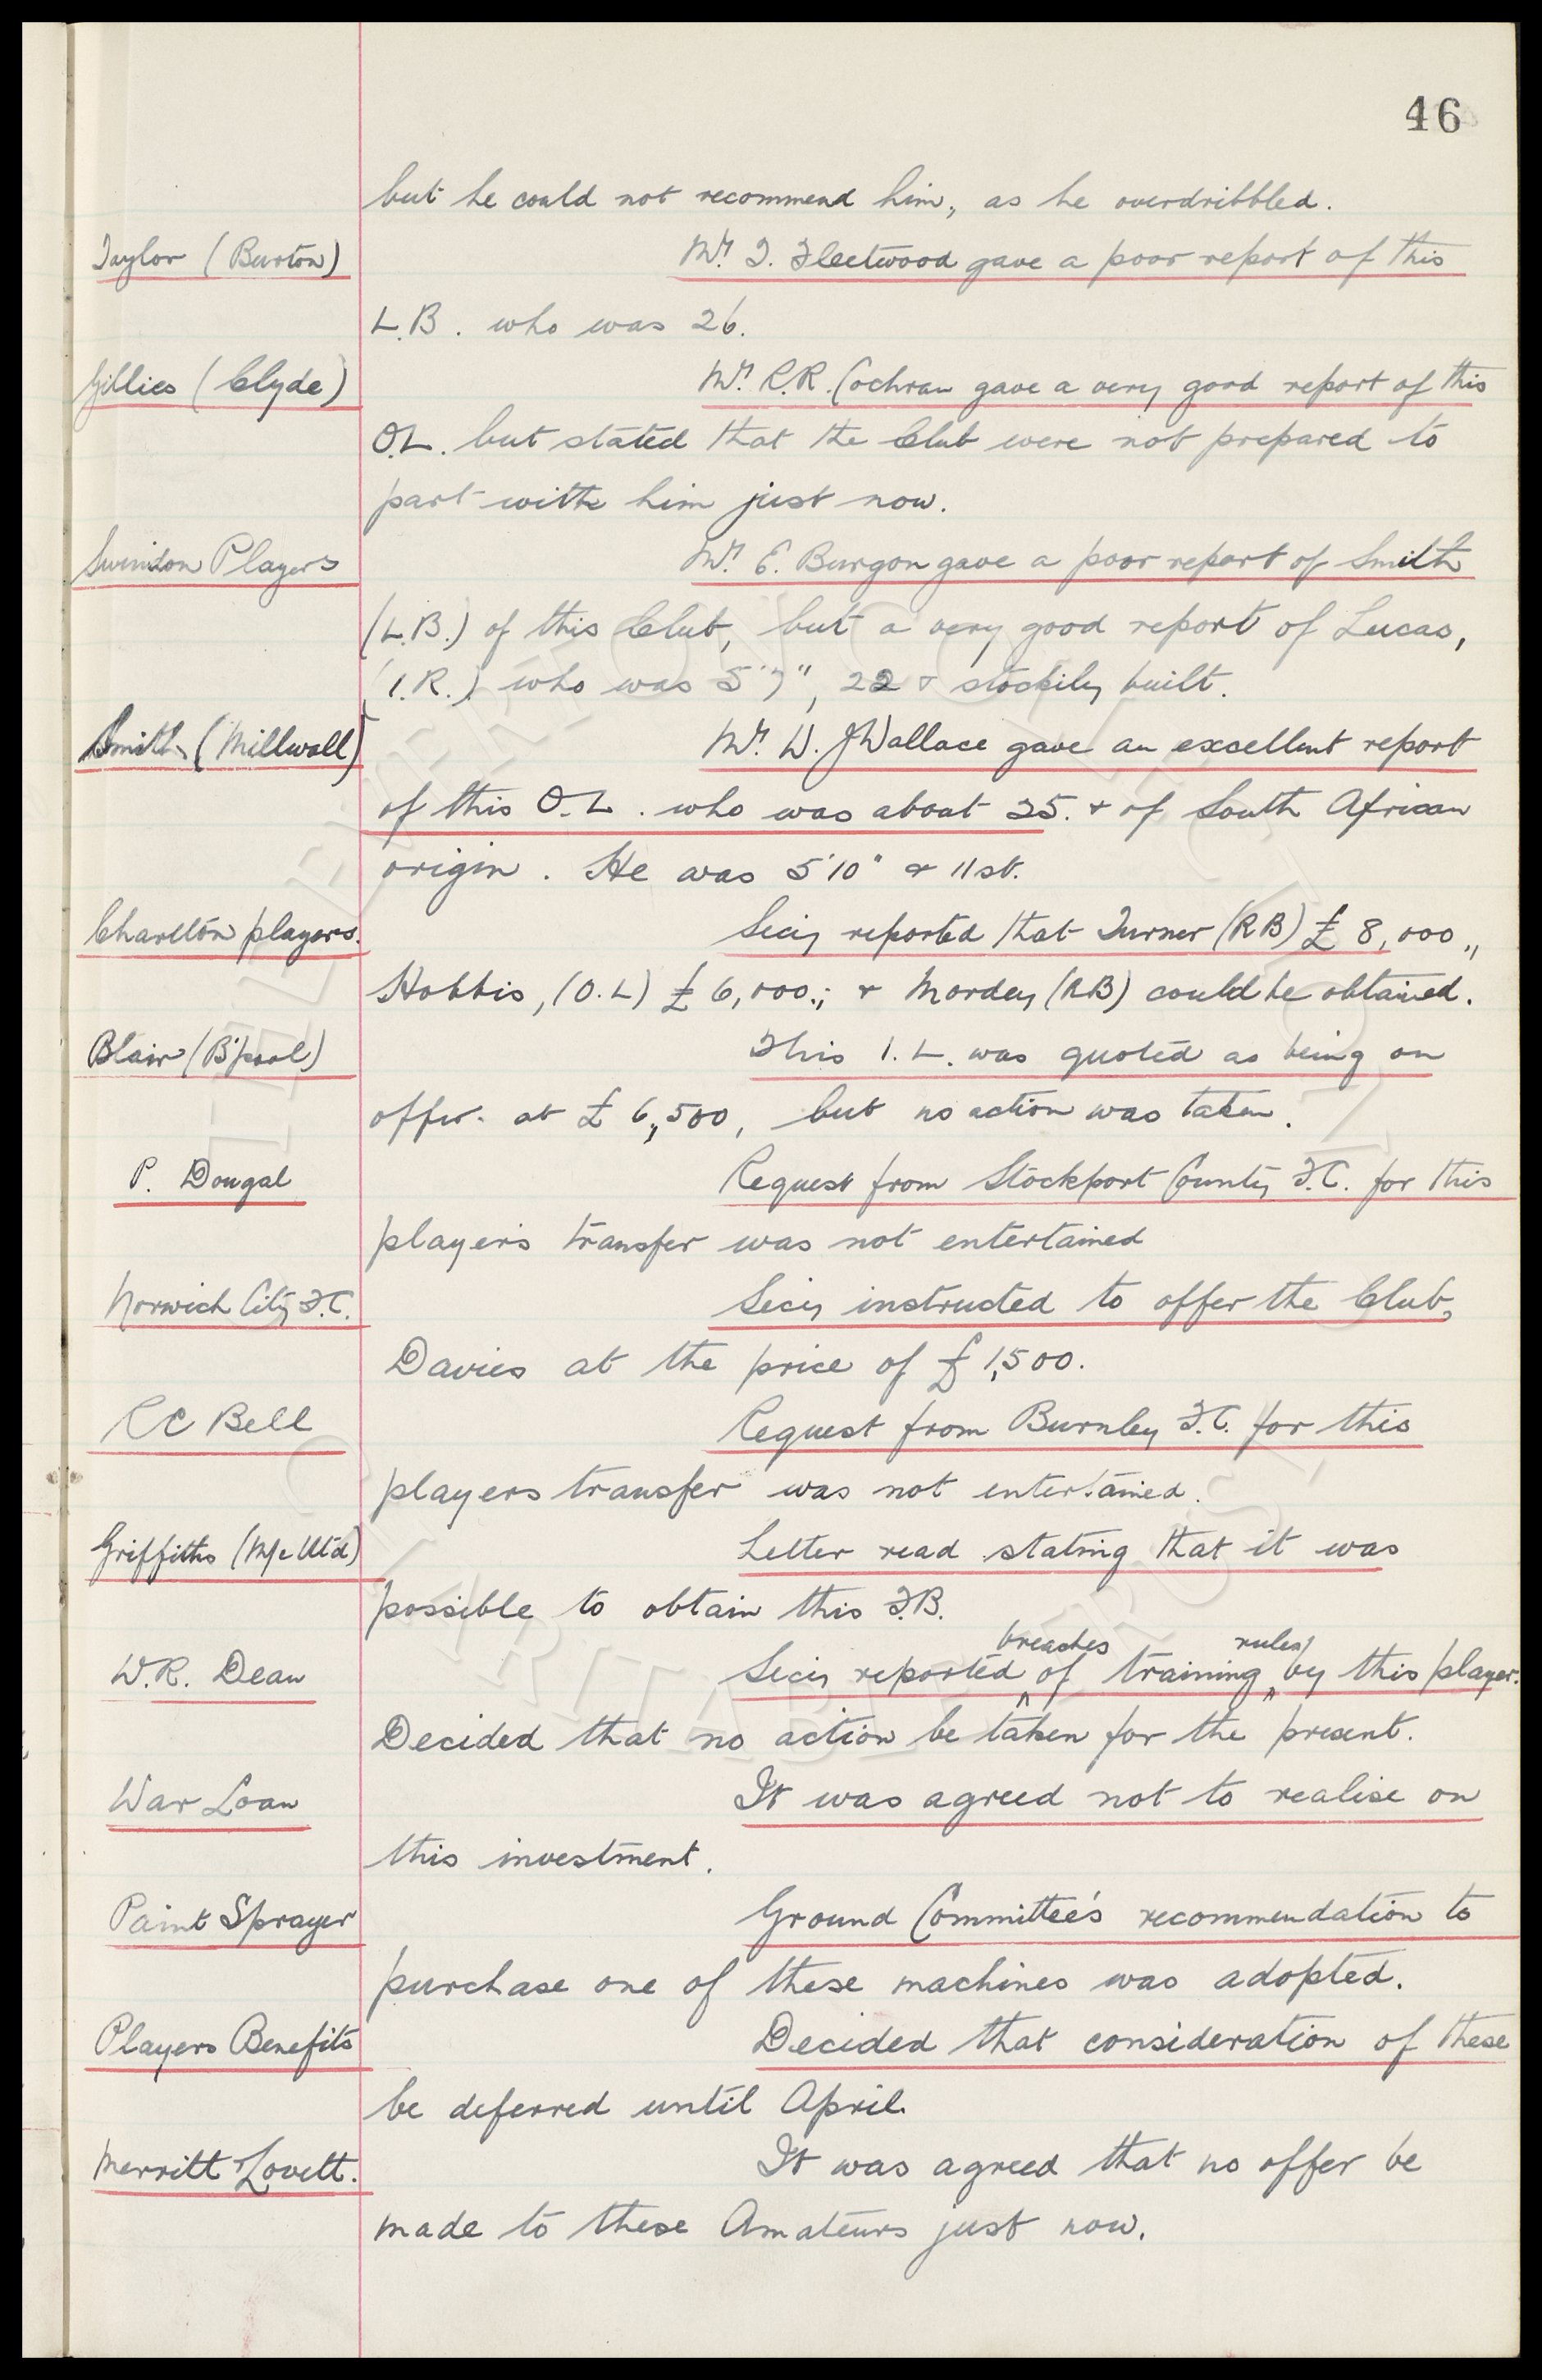 46
but he could not recommend him, as he overdribbled.
Taylor (Burton) Mr. T. Fleetwood gave a poor report of this
L.B. who was 26.
Gillies (Clyde) Mr. R.R. Cochran gave a very good report of this
O.L. but stated that the Club were not prepared to
part with him just now.
Swindon Players Mr. E. Burgon gave a poor report of Smith
(L.B.) of this Club, but a very good report of Lucas,
(I.R.) who was 5'7", 22 & stockily built.
Smith (Millwall) Mr. W. J. Wallace gave an excellent report
of this O.L. who was about 25. & of South African
origin. He was 5'10" & 11st.
Charlton players. Secy reported that Turner (RB) £8,000,,
Hobbis, (O.L) £6,000.; & Mordey (RB) could be obtained.
Blair (B'pool) This I.L. was quoted as being on
offer at £6,500, but no action was taken.
P. Dougal Request from Stockport County F.C. for this
player's transfer was not entertained
Norwich City F.C. Secy instructed to offer the Club,
Davies at the price of £1,500.
RC Bell Request from Burnley F.C. for this
players transfer was not entertained.
Griffiths (M/c Utd) Letter read stating that it was
possible to obtain this F.B.
W.R. Dean Secy reported breaches of training rules by this player.
Decided that no action be taken for the present.
War Loan It was agreed not to realise on
this investment.
Paint Sprayer Ground Committee's recommendation to
purchase one of these machines was adopted.
Players Benefits Decided that consideration of these
be deferred until April.
Merritt & Lovett. It was agreed that no offer be
made to these Amateurs just now.